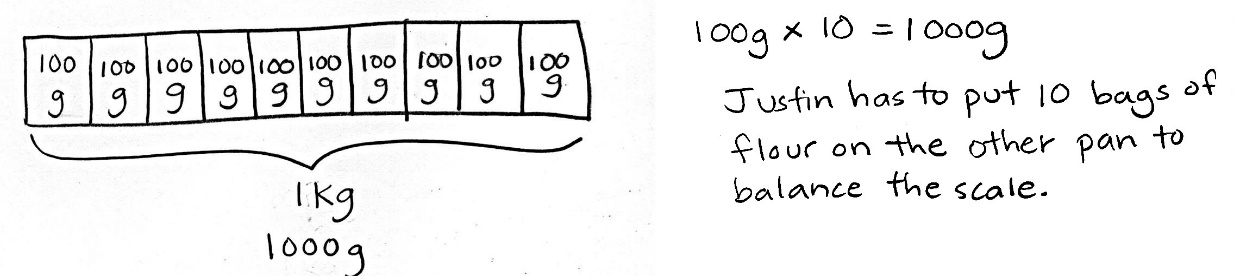 100 g 100 g 100 g 100 g 100 g 100 g 100 g 100 g 100 g 100 g
1kg
1000g
100g × 10 = 1000g
Justin has to put 10 bags of
flour on the other pan to
balance the scale.